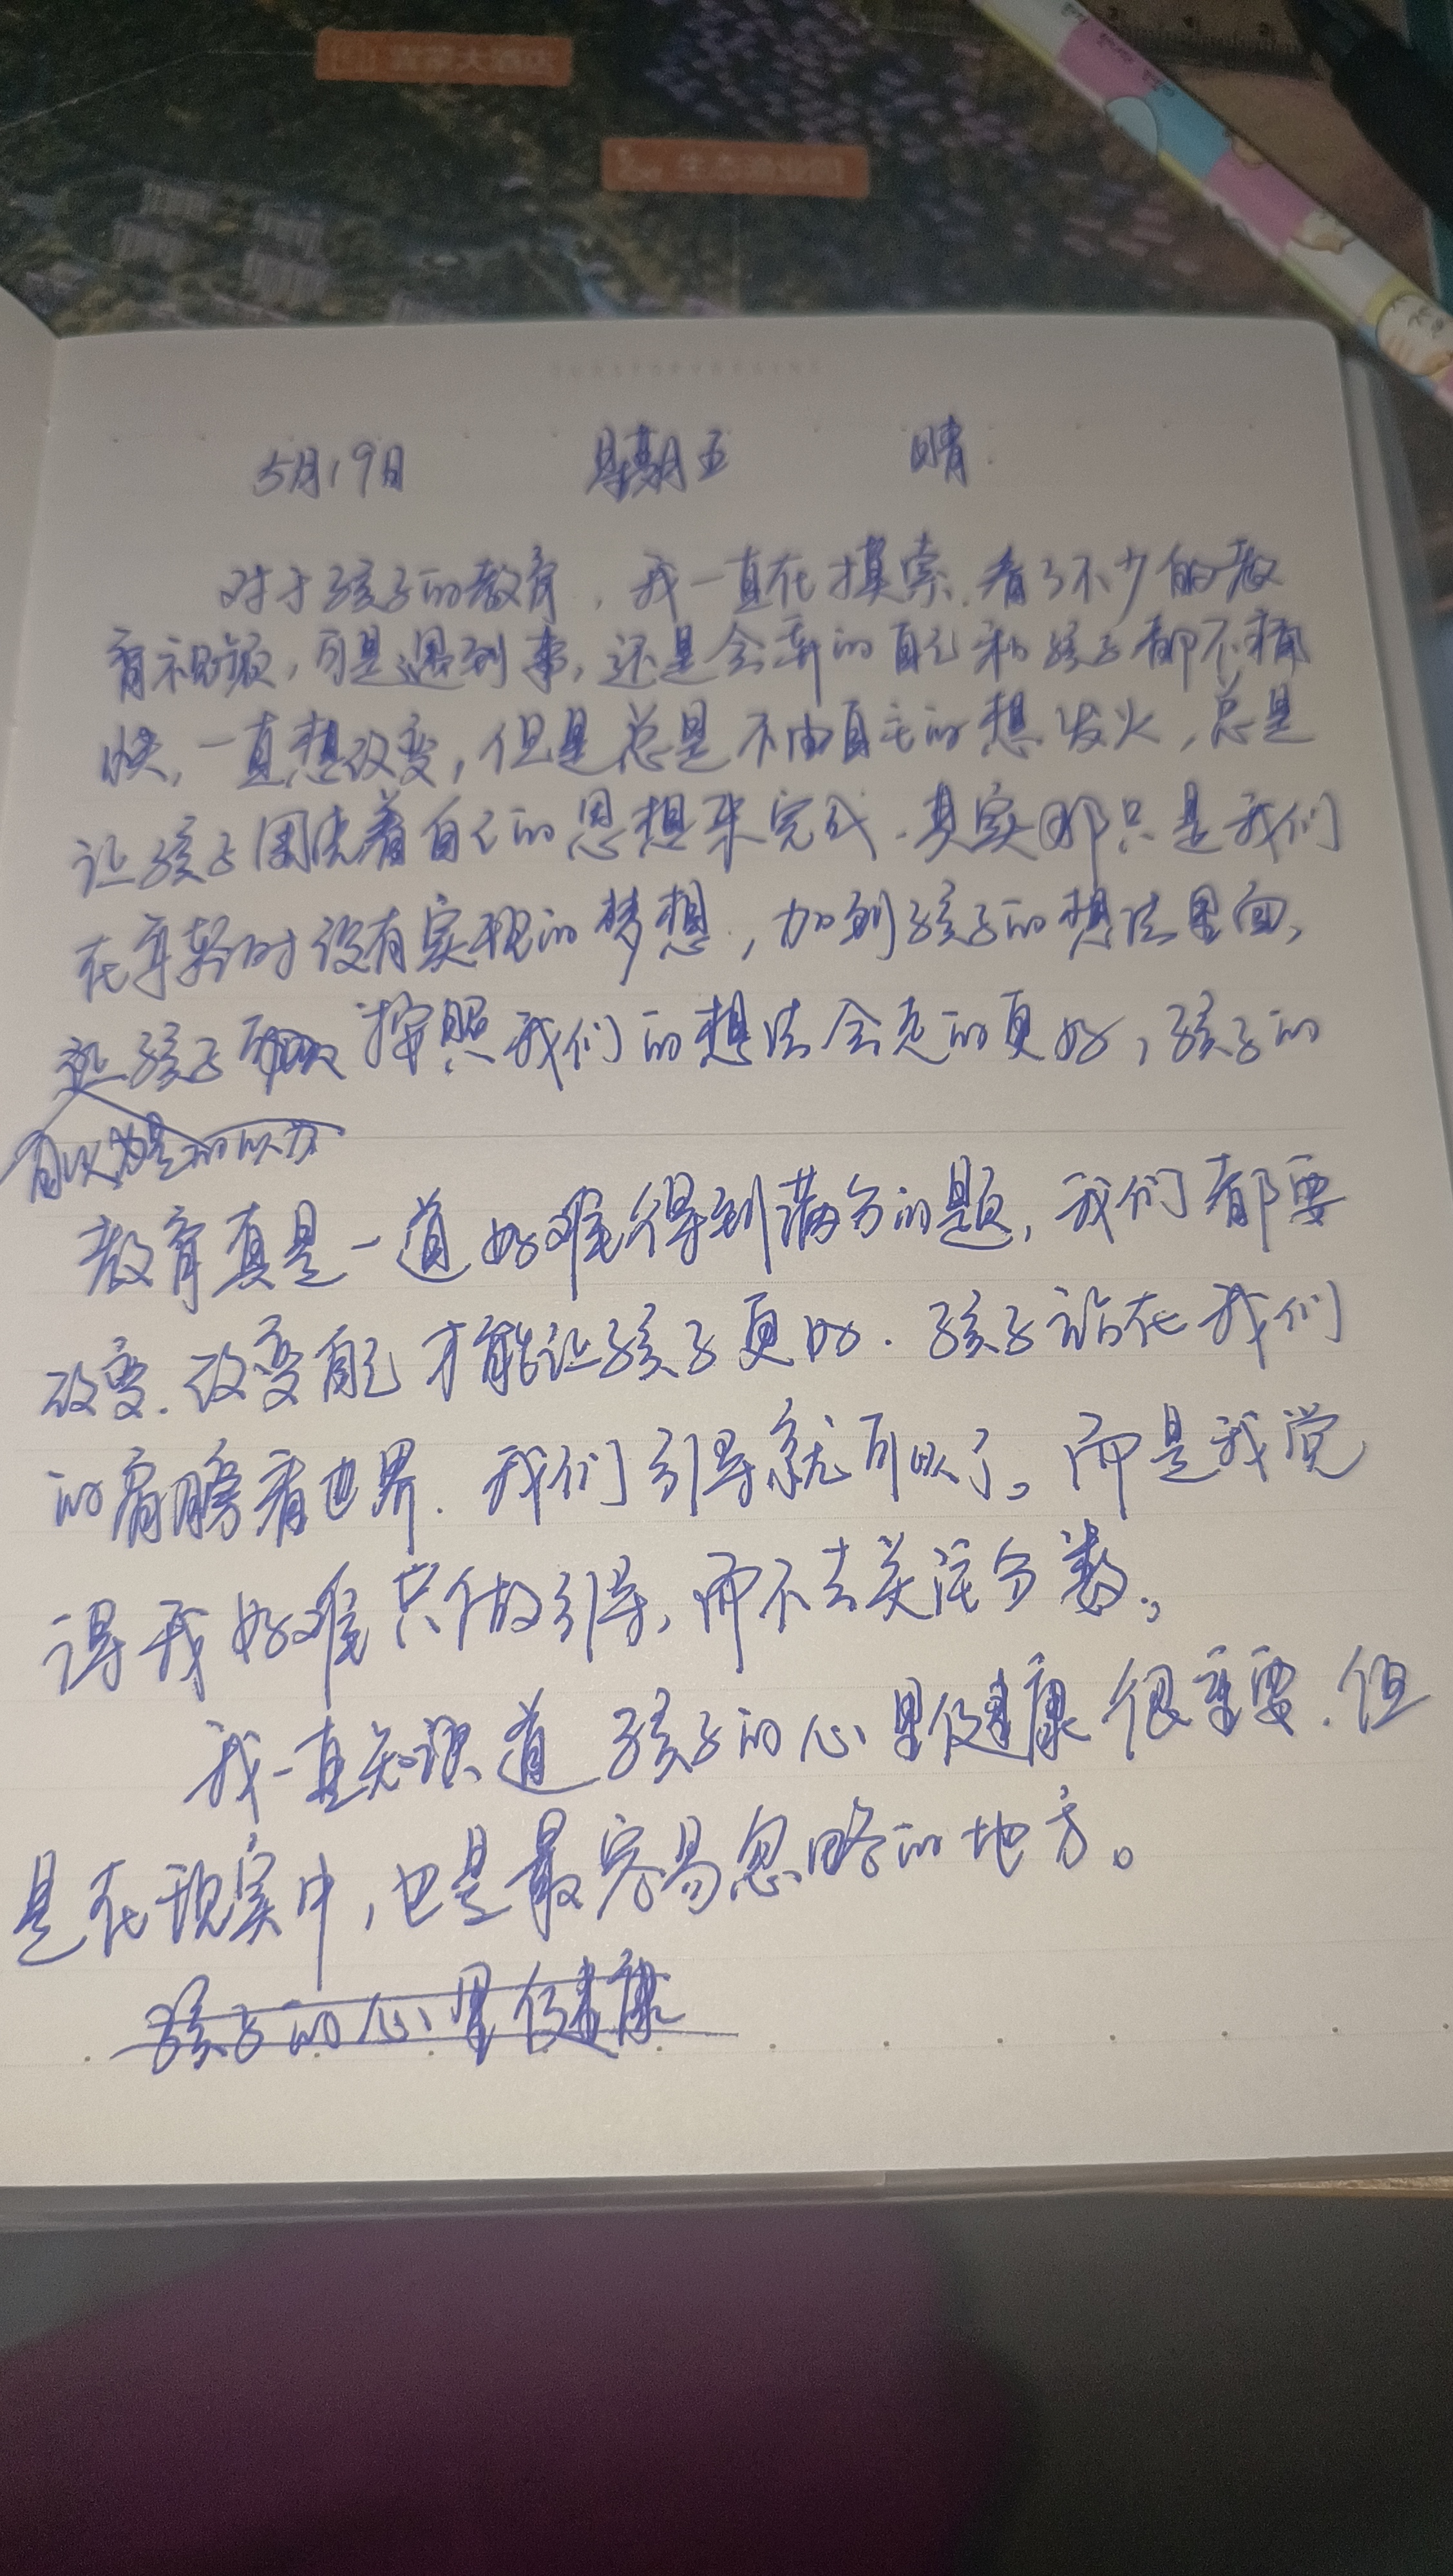 生态渔业园
5月19日 星期五 晴.
对于孩子的教育,我一直在摸索.看了不少的教
育视频,可是遇到事,还是会弄的自己和孩子都不痛
快,一直想改变,但是总是不由自主的想发火,总是
让孩子围绕着自己的思想来完成.其实那只是我们
在年轻时没有实现的梦想,加到孩子的想法里面,
孩子 按照我们的想法会走的更好,孩子的
自以为是的以为
教育真是一道好难得到满分的题,我们都要
改变.改变自己才能让孩子更好.孩子站在我们
的肩膀看世界.我们引导就可以了。而是我觉
得我好难只做引导,而不去关注分数。
我一直知道孩子的心里健康很重要.但
是在现实中,也是最容易忽略的地方。
孩子的心里健康